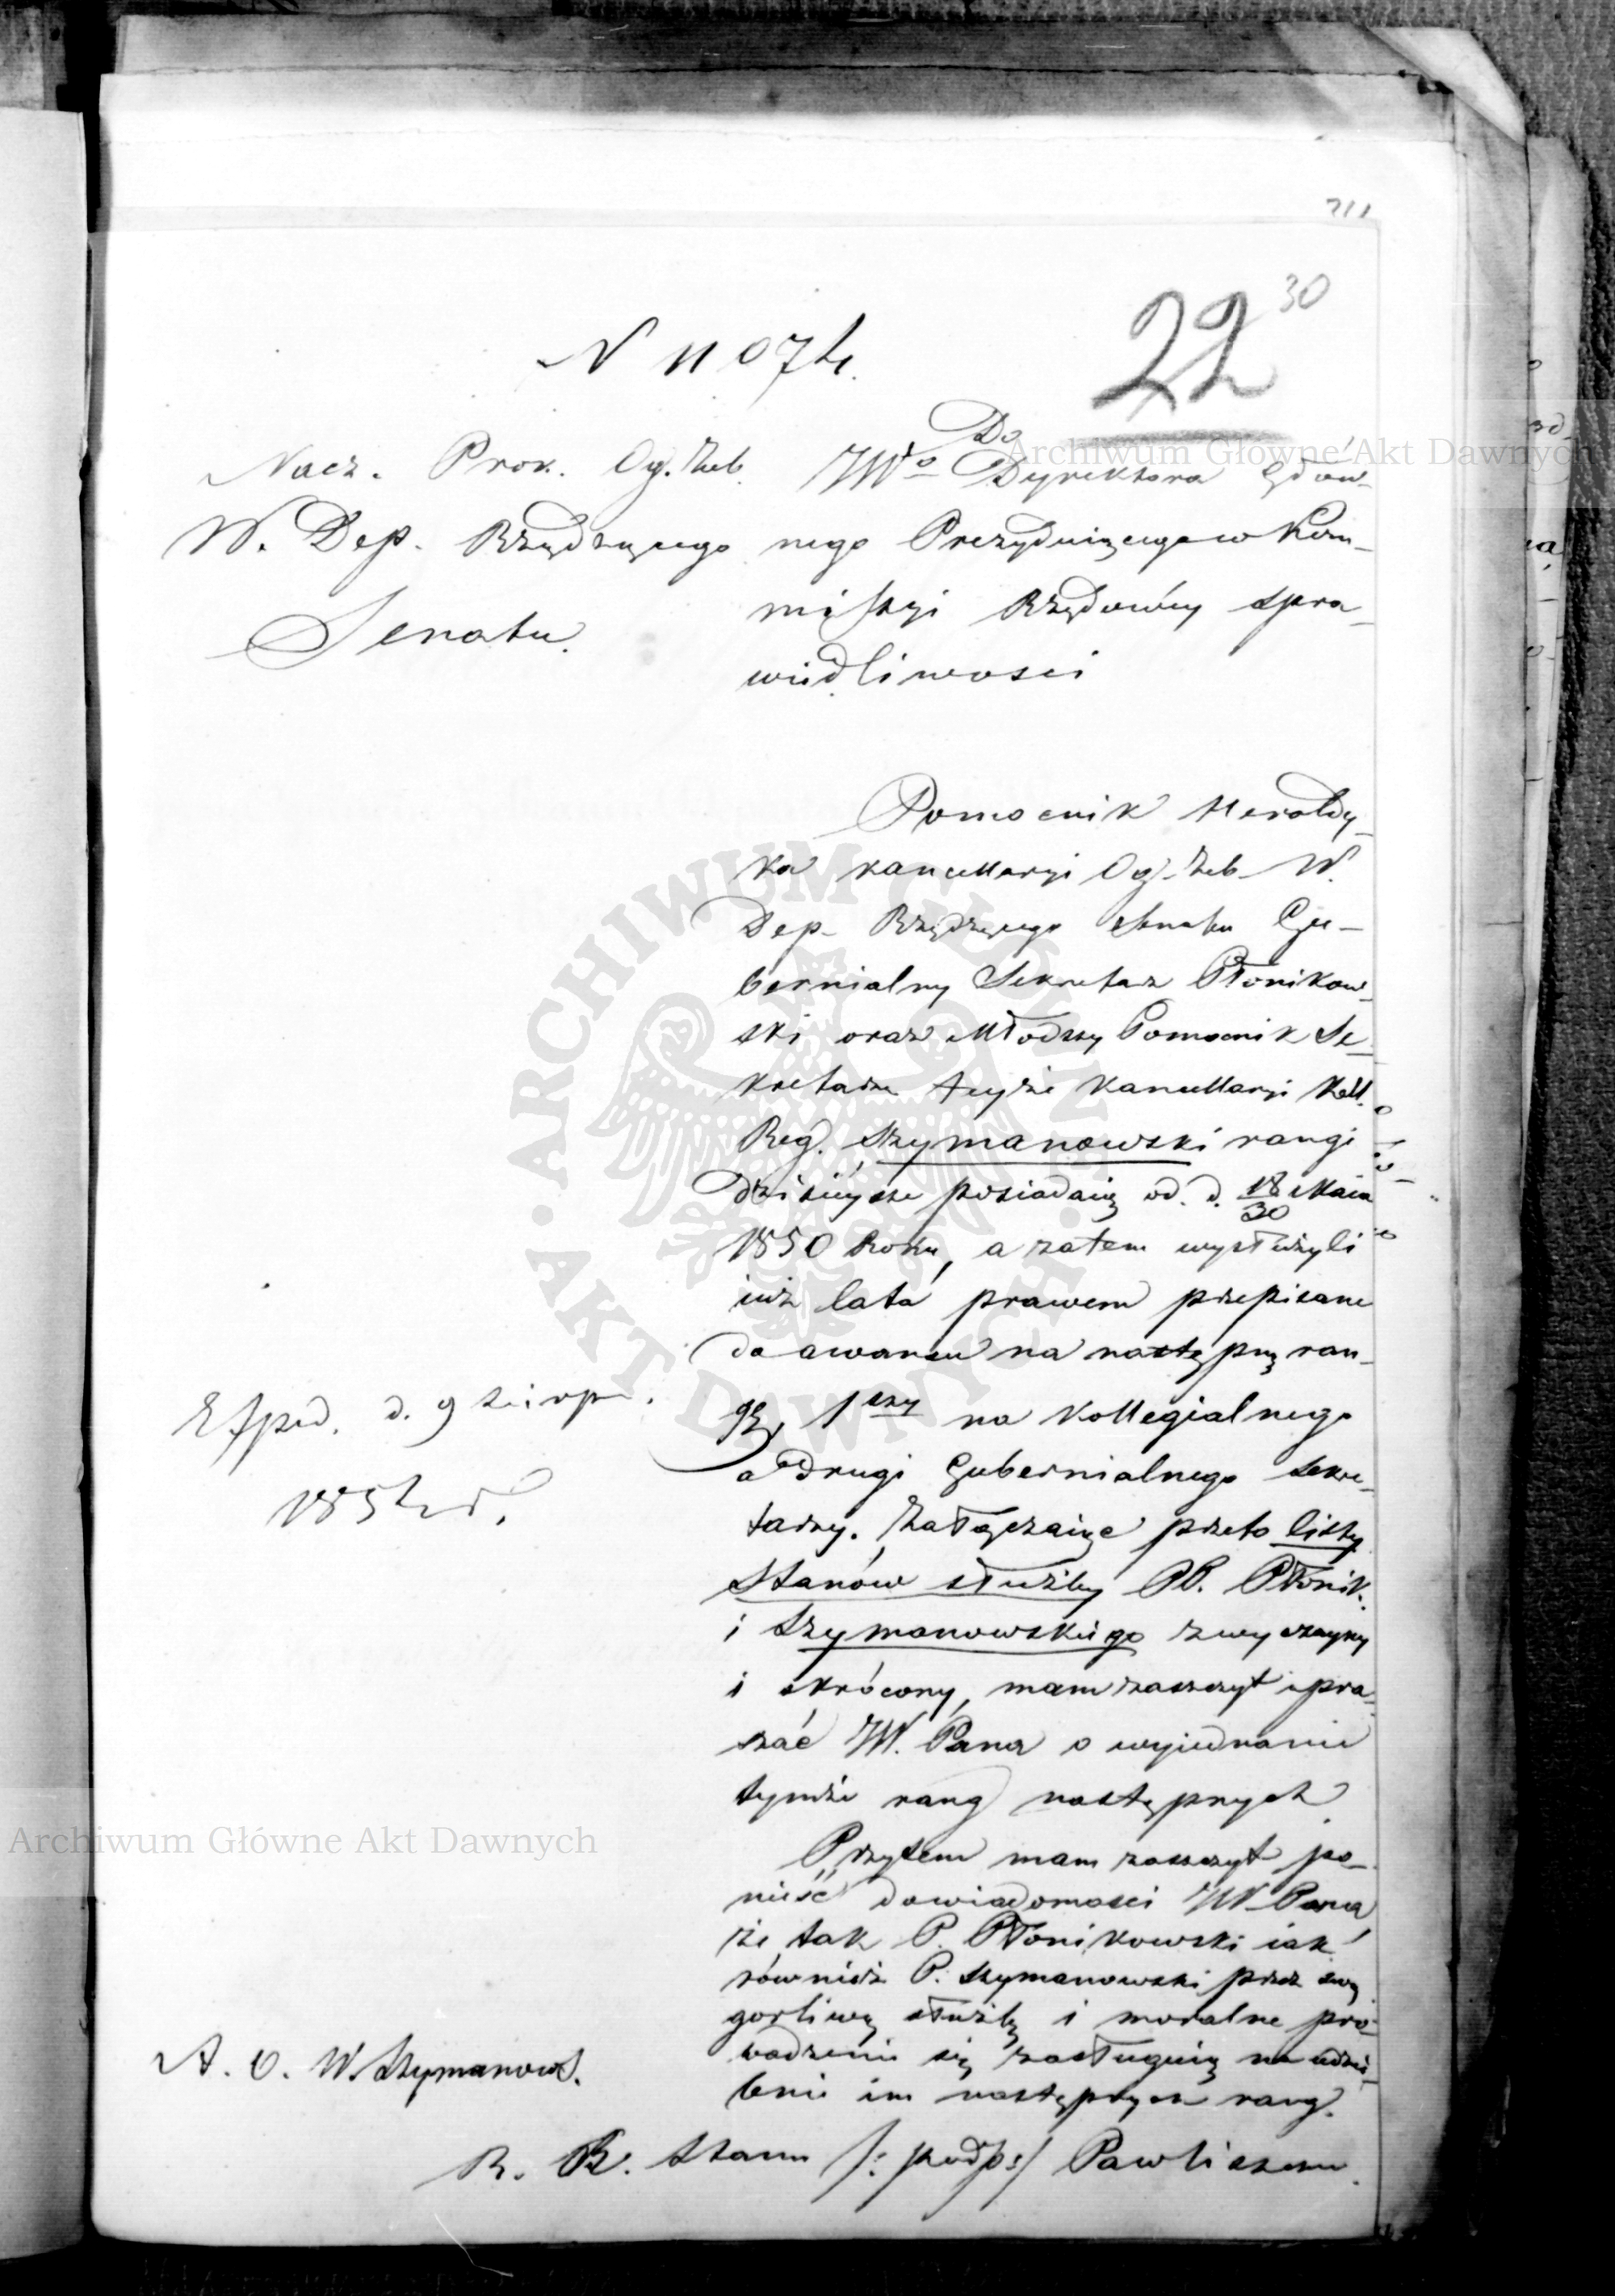 711
22 30
N 11074.
Nacz. Prok. Og. Zeb.
W. Dep. Rządzącego
Senatu.
Do
JWo Dyrektora Głów-
nego Prezyduiącego w Kom-
missyi Rządowéy Spra-
wiedliwosci
Pomocnik Heroldy-
ka kancellaryi Og. Zeb. W.
Dep. Rządzącego Senatu Gu-
bernialny Sekretarz Płonikow-
ski oraz Młodszy Pomocnik Se-
kretarza teyże kancellaryi Koll.
Reg. Szymanowski rangi
dzisieysze posiadaią od. d. 18/30 Maia
1850 Roku, a zatem wysłużyli
iuż lata prawem przepisane
do awansu na następną ran-
gę, 1szy na Kollegialnego
a drugi Gubernialnego Sekre-
tarzy. Załączaiąc przeto listy
Stanów służby PP. Płonik.
i Szymanowskiego zwyczayny
i skrócony, mam zaszczyt upra-
szać JW. Pana o wyiednanie
tymże rang następnych
Przytem mam zaszczyt po-
nieść do wiadomości JW Pana
że tak P. Płonikowski iak
również P. Szymanowski przez swą
gorliwą służbę i moralne pro-
wadzenie się zasługuią na udzie-
lenie im następnych rang.
Exped. d. 9 Sierpn.
1854 r.
A. O. W. Szymanows.
R. R. Stanu /: podp :/ Pawliszczew.
Archiwum Główne Akt Dawnych
Archiwum Główne Akt Dawnych
ARCHIWUM GŁÓWNE · AKT DAWNYCH ·